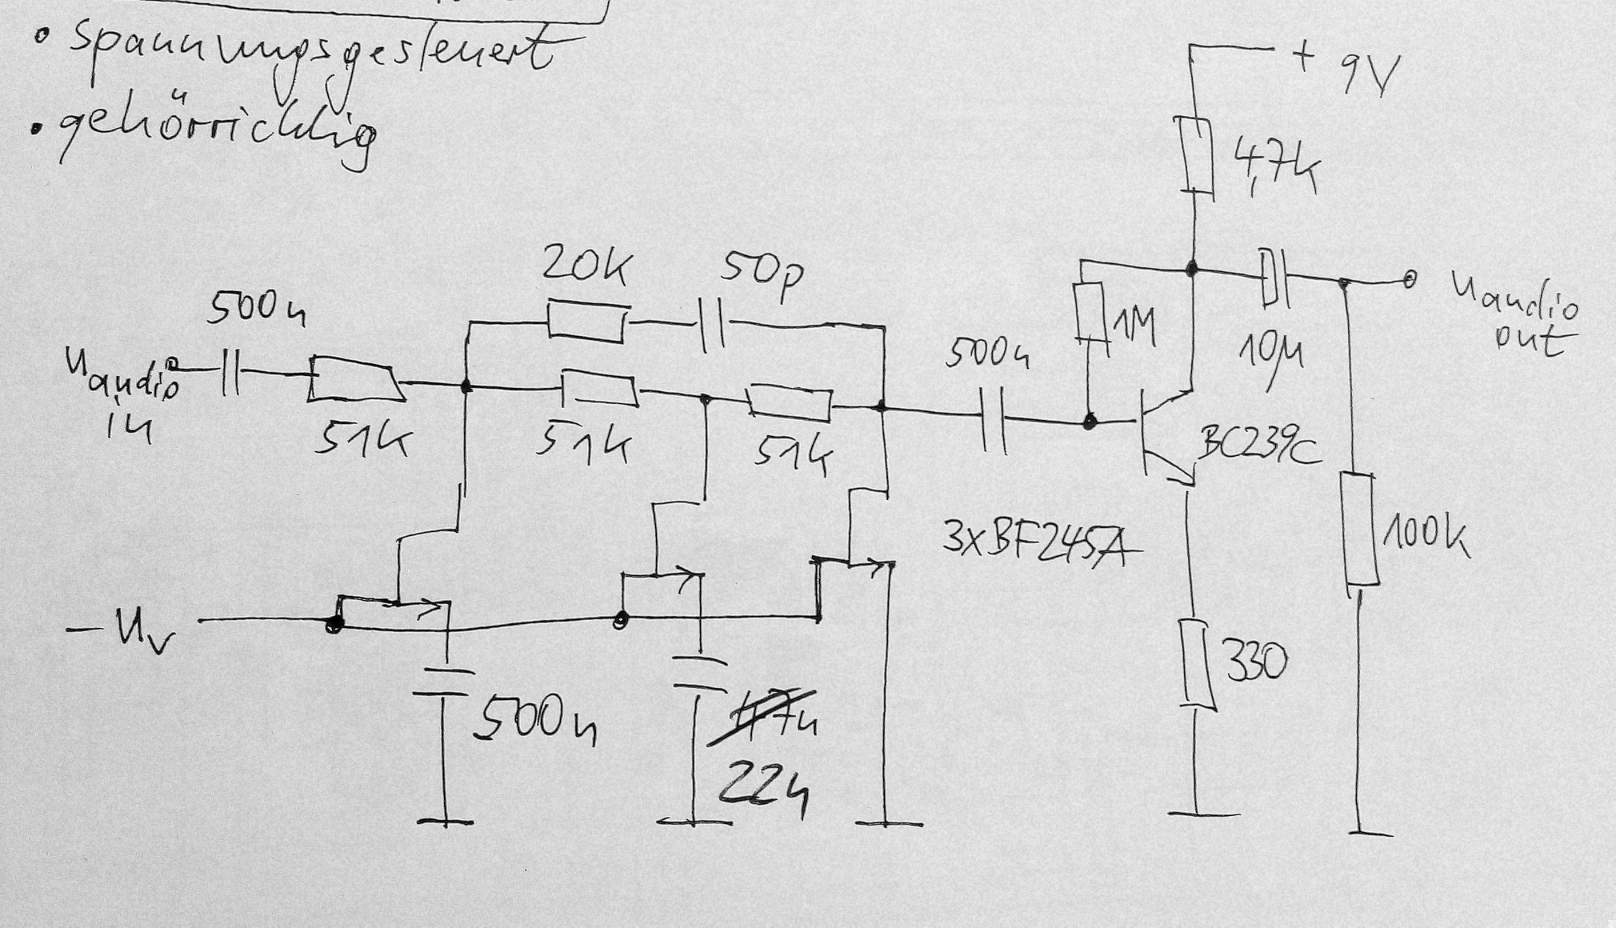 • spannungsgesteuert
• gehörrichtig
+ 9V
4,7k
20k
50p
500n
U audio in
51k
51k
51k
500n
1M
10µ
U audio out
BC239C
3xBF245A
100k
- Uv
500n
47n
22n
330